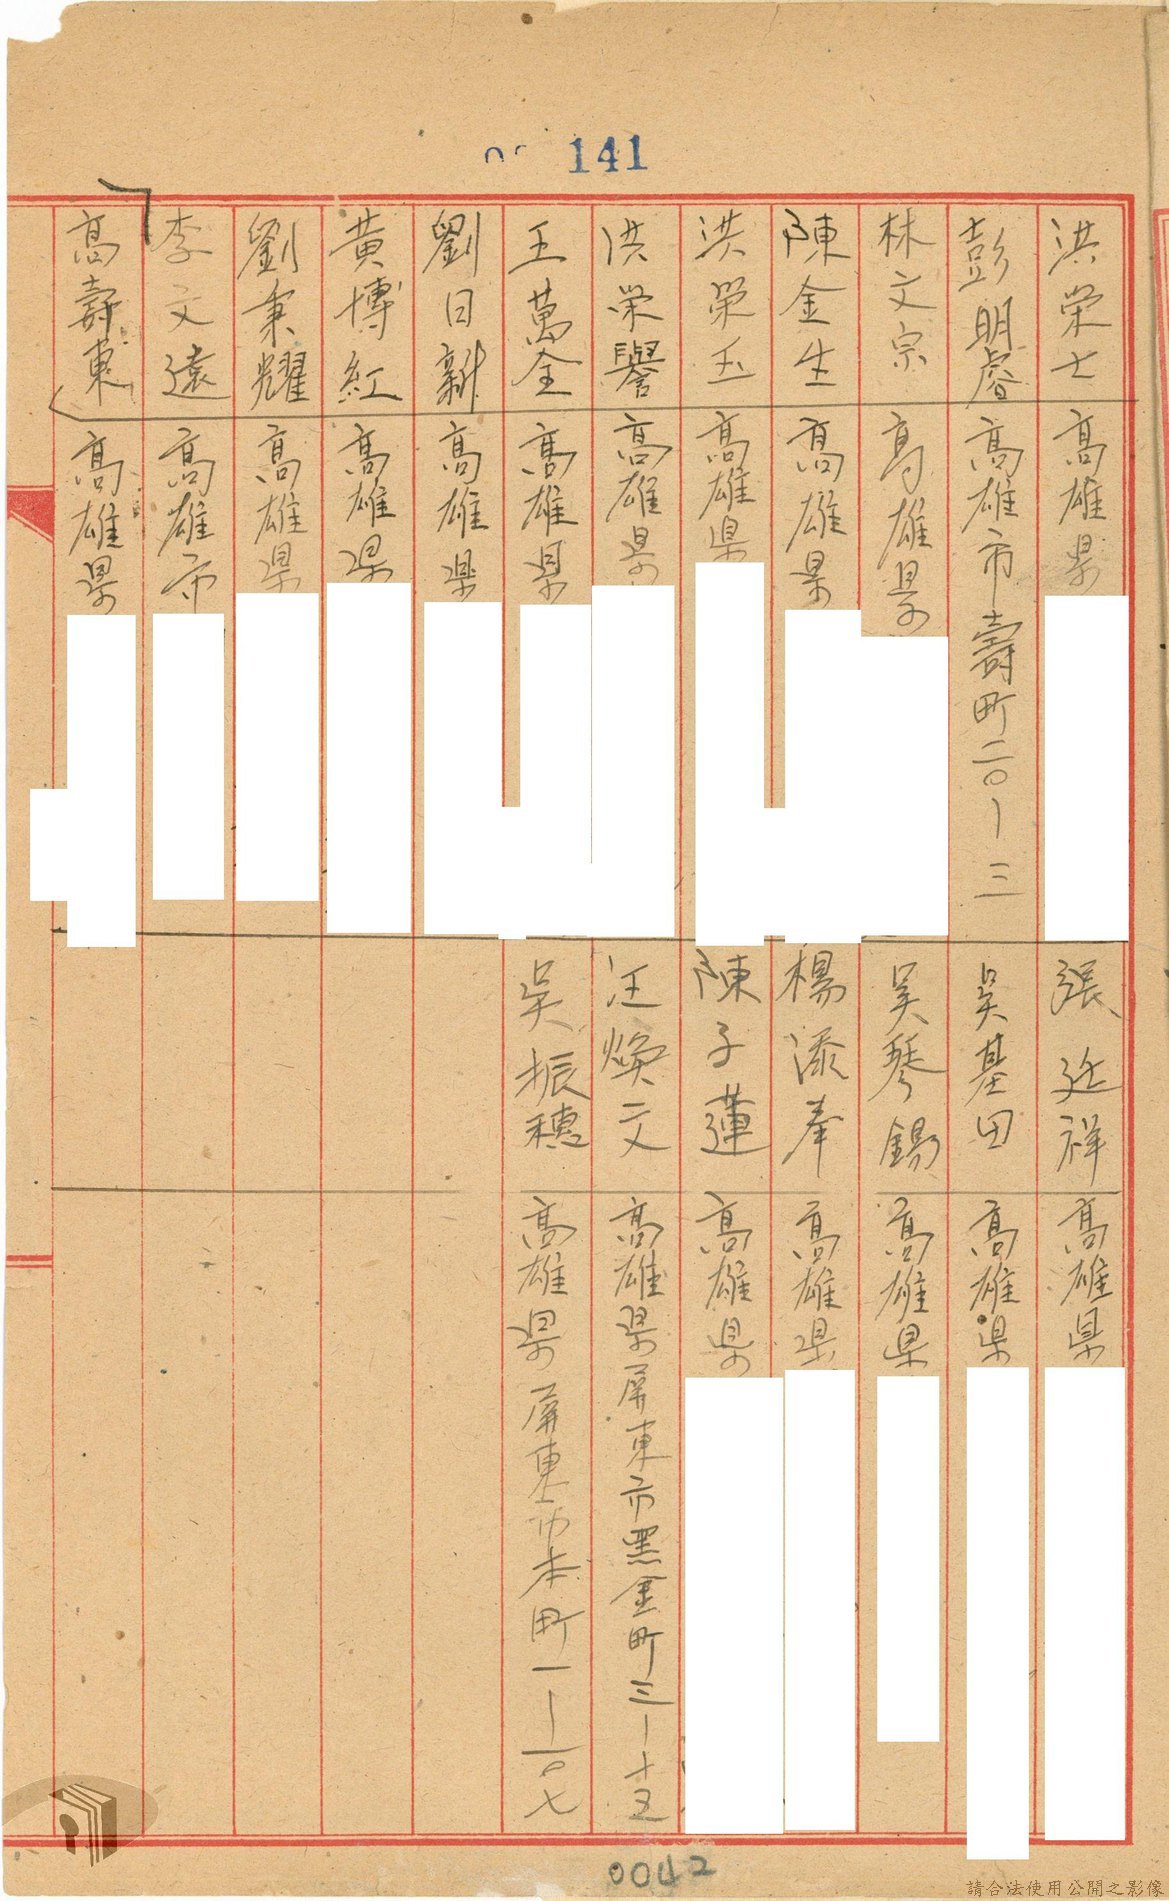 141
洪栄士 高雄県
彭明睿 高雄市壽町二〇一三
林文宗 高雄県
陳金生 高雄県
洪栄玉 高雄県
洪栄譽 高雄県
王萬全 高雄県
劉日新 高雄県
黄博紅 高雄県
劉秉耀 高雄県
李文遠 高雄市
高壽東 高雄県
張廷祥 高雄県
吳基田 高雄県
吴琴錫 高雄県
楊添奉 高雄県
陳子蓮 高雄県
汪煥文 高雄県屏東市黒金町三ー十五
吴振穗 高雄県屏東市本町一ー一〇七
0042
請合法使用公開之影像